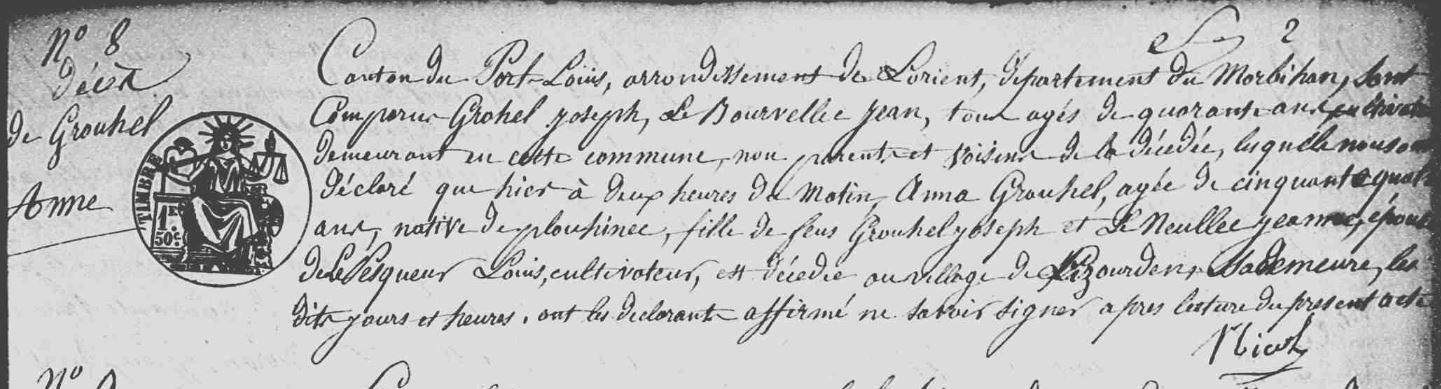 N° 8
décès
de Grouhel
Anne
TIMBRE
50c
2
Canton du Port-Louis, arrondissement de Lorient, département du Morbihan, sont
Comparus Grohel joseph, Le Bourvellec jean, tous agés de quarante ans, cultivateurs
demeurant en cette commune, non parents et voisins de la décédée, lesquéls nous ont
déclaré que hier à deux heures du Matin, Anna Grouhel, agée de cinquante quatre
ans, native de plouhinec, fille de feus Grouhel joseph et Le Neullec jeanne, épouse
de Le Pesqueur Louis, cultivateur, est décédée au village de sa demeure, les
dits jours et heures. ont les déclarants affirmé ne savoir signer apres lecture du present acte
Nicol
N°